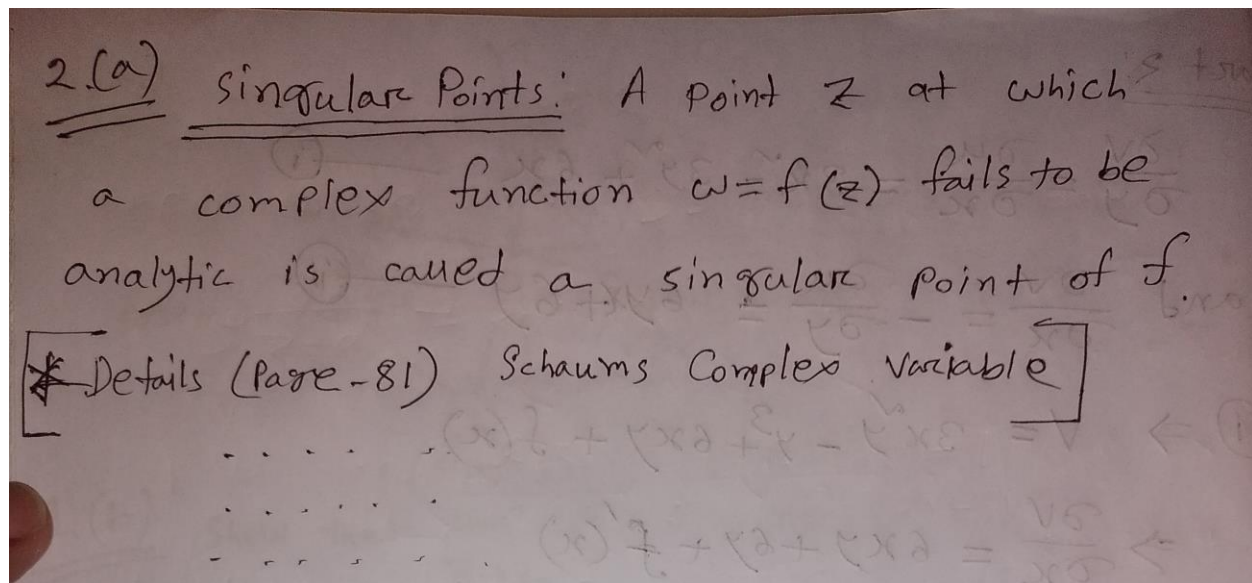 2.(a) Singular Points: A point z at which
a complex function ω = f(z) fails to be
analytic is called a singular point of f.
[* Details (Page-81) Schaums Complex Variable]
. . . . .
. . . . . .
. . . . . .